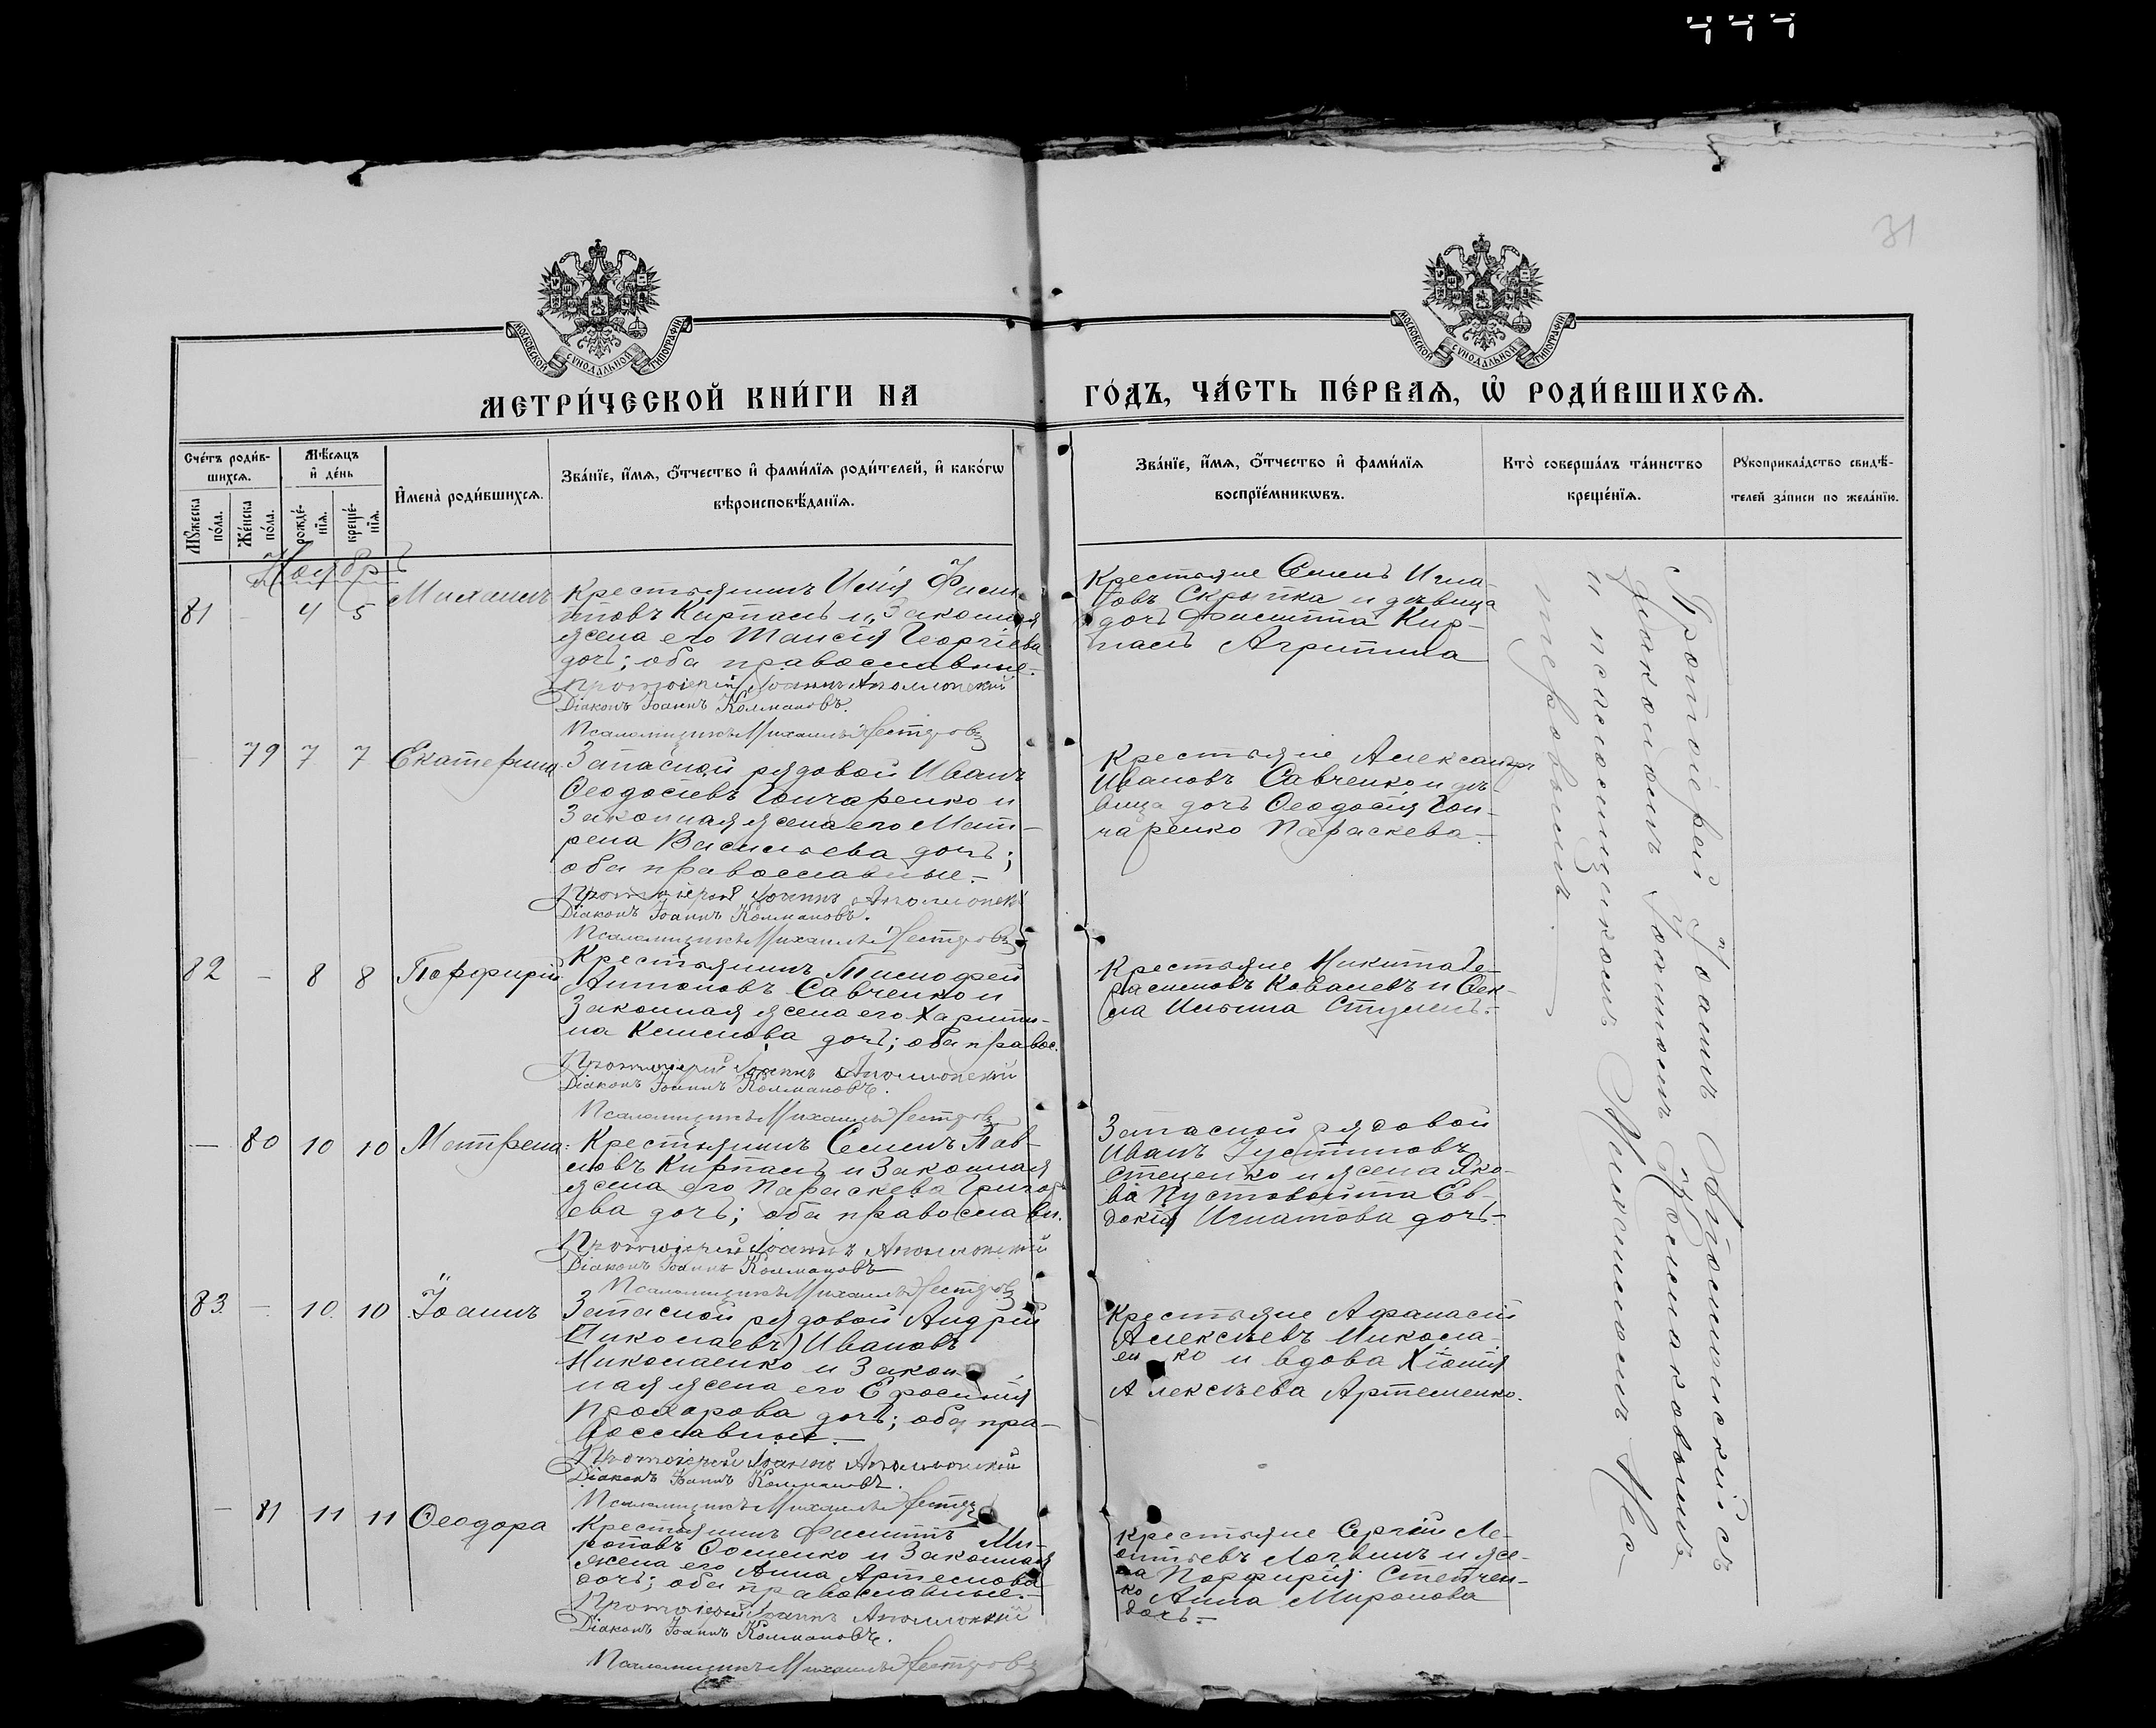 31
МОСКОВСКОЙ СѴНОДАЛЬНОЙ ТИПОГРАФІИ
МОСКОВСКОЙ СѴНОДАЛЬНОЙ ТИПОГРАФІИ
МЕТРИ́ЧЕСКОЙ КНИ́ГИ НА ГО́ДЪ, ЧА́СТЬ ПЕ́РВАѦ, Ѽ РОДИ́ВШИХСѦ.
Сче́тъ роди́в-
шихсѧ.
Мꙋ́жеска
по́ла.
Же́нска
по́ла.
Мѣ́сѧцъ
и҆ де́нь
рожде́-
нїѧ.
креще́-
нїѧ.
И҆мена̀ роди́вшихсѧ.
Зва́нїе, и҆́мѧ, ѻ҆́тчество и҆ фами́лїѧ роди́телей, и҆ како́гѡ
вѣроисповѣ́данїѧ.
Зва́нїе, и҆́мѧ, ѻ҆́тчество и҆ фами́лїѧ
воспрїе́мникѡвъ.
Кто̀ соверша́лъ та́инство
креще́нїѧ.
Рꙋкоприкла́дство свидѣ́-
телей за́писи по жела́нїю.
Ноябрь
81 - 4 5 Михаилъ
Крестьянинъ Илія Фили-
пповъ Кирпаль и Законная
жена его Таисія Георгіева
дочь; оба православные.
Протоіерей Іоаннъ Аполлонскій
Діаконъ Іоаннъ Колмаковъ.
Псаломщикъ Михаилъ Нестеровъ
Крестьяне Семенъ Игна-
товъ Скрыпка и дѣвица
дочь Филиппа Кир-
паль Агрипина
- 79 7 7 Екатерина
Запасной рядовой Иванъ
Ѳеодосіевъ Гончаренко и
Законная жена его Мат-
рена Васильева дочь;
оба православные.-
Протоіерей Іоаннъ Аполлонскій
Діаконъ Іоаннъ Колмаковъ.
Псаломщикъ Михаилъ Нестеровъ
Крестьяне Александръ
Ивановъ Савченко и дѣ-
вица дочь Ѳеодосія Гон-
чаренко Параскева.-
82 - 8 8 Порфирій
Крестьянинъ Тимофей
Антоновъ Савченко и
Законная жена его Харити-
на дочь; оба правос.
Протоіерей Іоаннъ Аполлонскій
Діаконъ Іоаннъ Колмаковъ.
Псаломщикъ Михаилъ Нестеровъ
Крестьяне Никита Ге-
расимовъ Ковалевъ и Ѳек-
ла Ильина
- 80 10 10 Матрена
Крестьянинъ Семенъ Пав-
ловъ Кирпаль и Законная
жена его Параскева Григорь-
ева дочь; оба православн.
Протоіерей Іоаннъ Аполлонскій
Діаконъ Іоаннъ Колмаковъ
Псаломщикъ Михаилъ Нестеровъ
Запасной рядовой
Иванъ Іустиновъ
Стеценко и жена Яко-
ва Пустовойта Ев-
докія Игнатова дочь-
83 - 10 10 Іоаннъ
Запасной рядовой Андрей
(Николаевъ) Ивановъ
Николаенко и Закон-
ная жена его Ефросинія
Прохорова дочь; оба пра-
вославные.-
Протоіерей Іоаннъ Аполлонскій
Діаконъ Іоаннъ Колмаковъ.
Псаломщикъ Михаилъ Нестеровъ
Крестьяне Афанасій
Алексѣевъ Никола-
енко и вдова Хіонія
Алексѣева Артеменко.
- 81 11 11 Ѳеодора
Крестьянинъ Филиппъ Ми-
роновъ Ѳоменко и Законная
жена его Анна Артемова
дочь; оба православные.-
Протоіерей Іоаннъ Аполлонскій
Діаконъ Іоаннъ Колмаковъ.
Псаломщикъ Михаилъ Нестеровъ
Крестьяне Сергій Ле-
онтьевъ Логвинъ и же-
на Порфирія Степчен-
ко Анна Миронова
дочь.-
Протоіерей Іоаннъ Аполлонскій съ
Діакономъ Іоанномъ Колмаковымъ
и псаломщикомъ Михаиломъ Нес-
теровымъ.